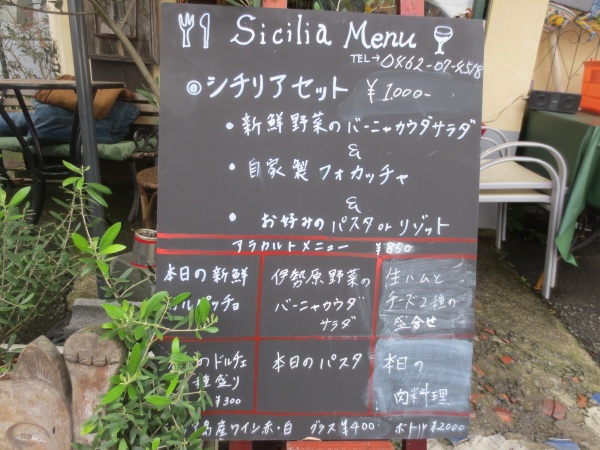 Sicilia Menu
TEL→0462-07-4518
◎シチリアセット ¥1,000-
・新鮮野菜のバーニャカウダサラダ
&
・自家製フォカッチャ
&
・お好みのパスタorリゾット
アラカルトメニュー ¥850
本日の新鮮
ルパッチョ
伊勢原野菜の
バーニャカウダ
サラダ
生ハムと
チーズ2種の
盛合せ
のドルチェ
種盛り
¥300
本日のパスタ
本日の
肉料理
産ワイン赤・白 グラス¥400 ボトル¥2000